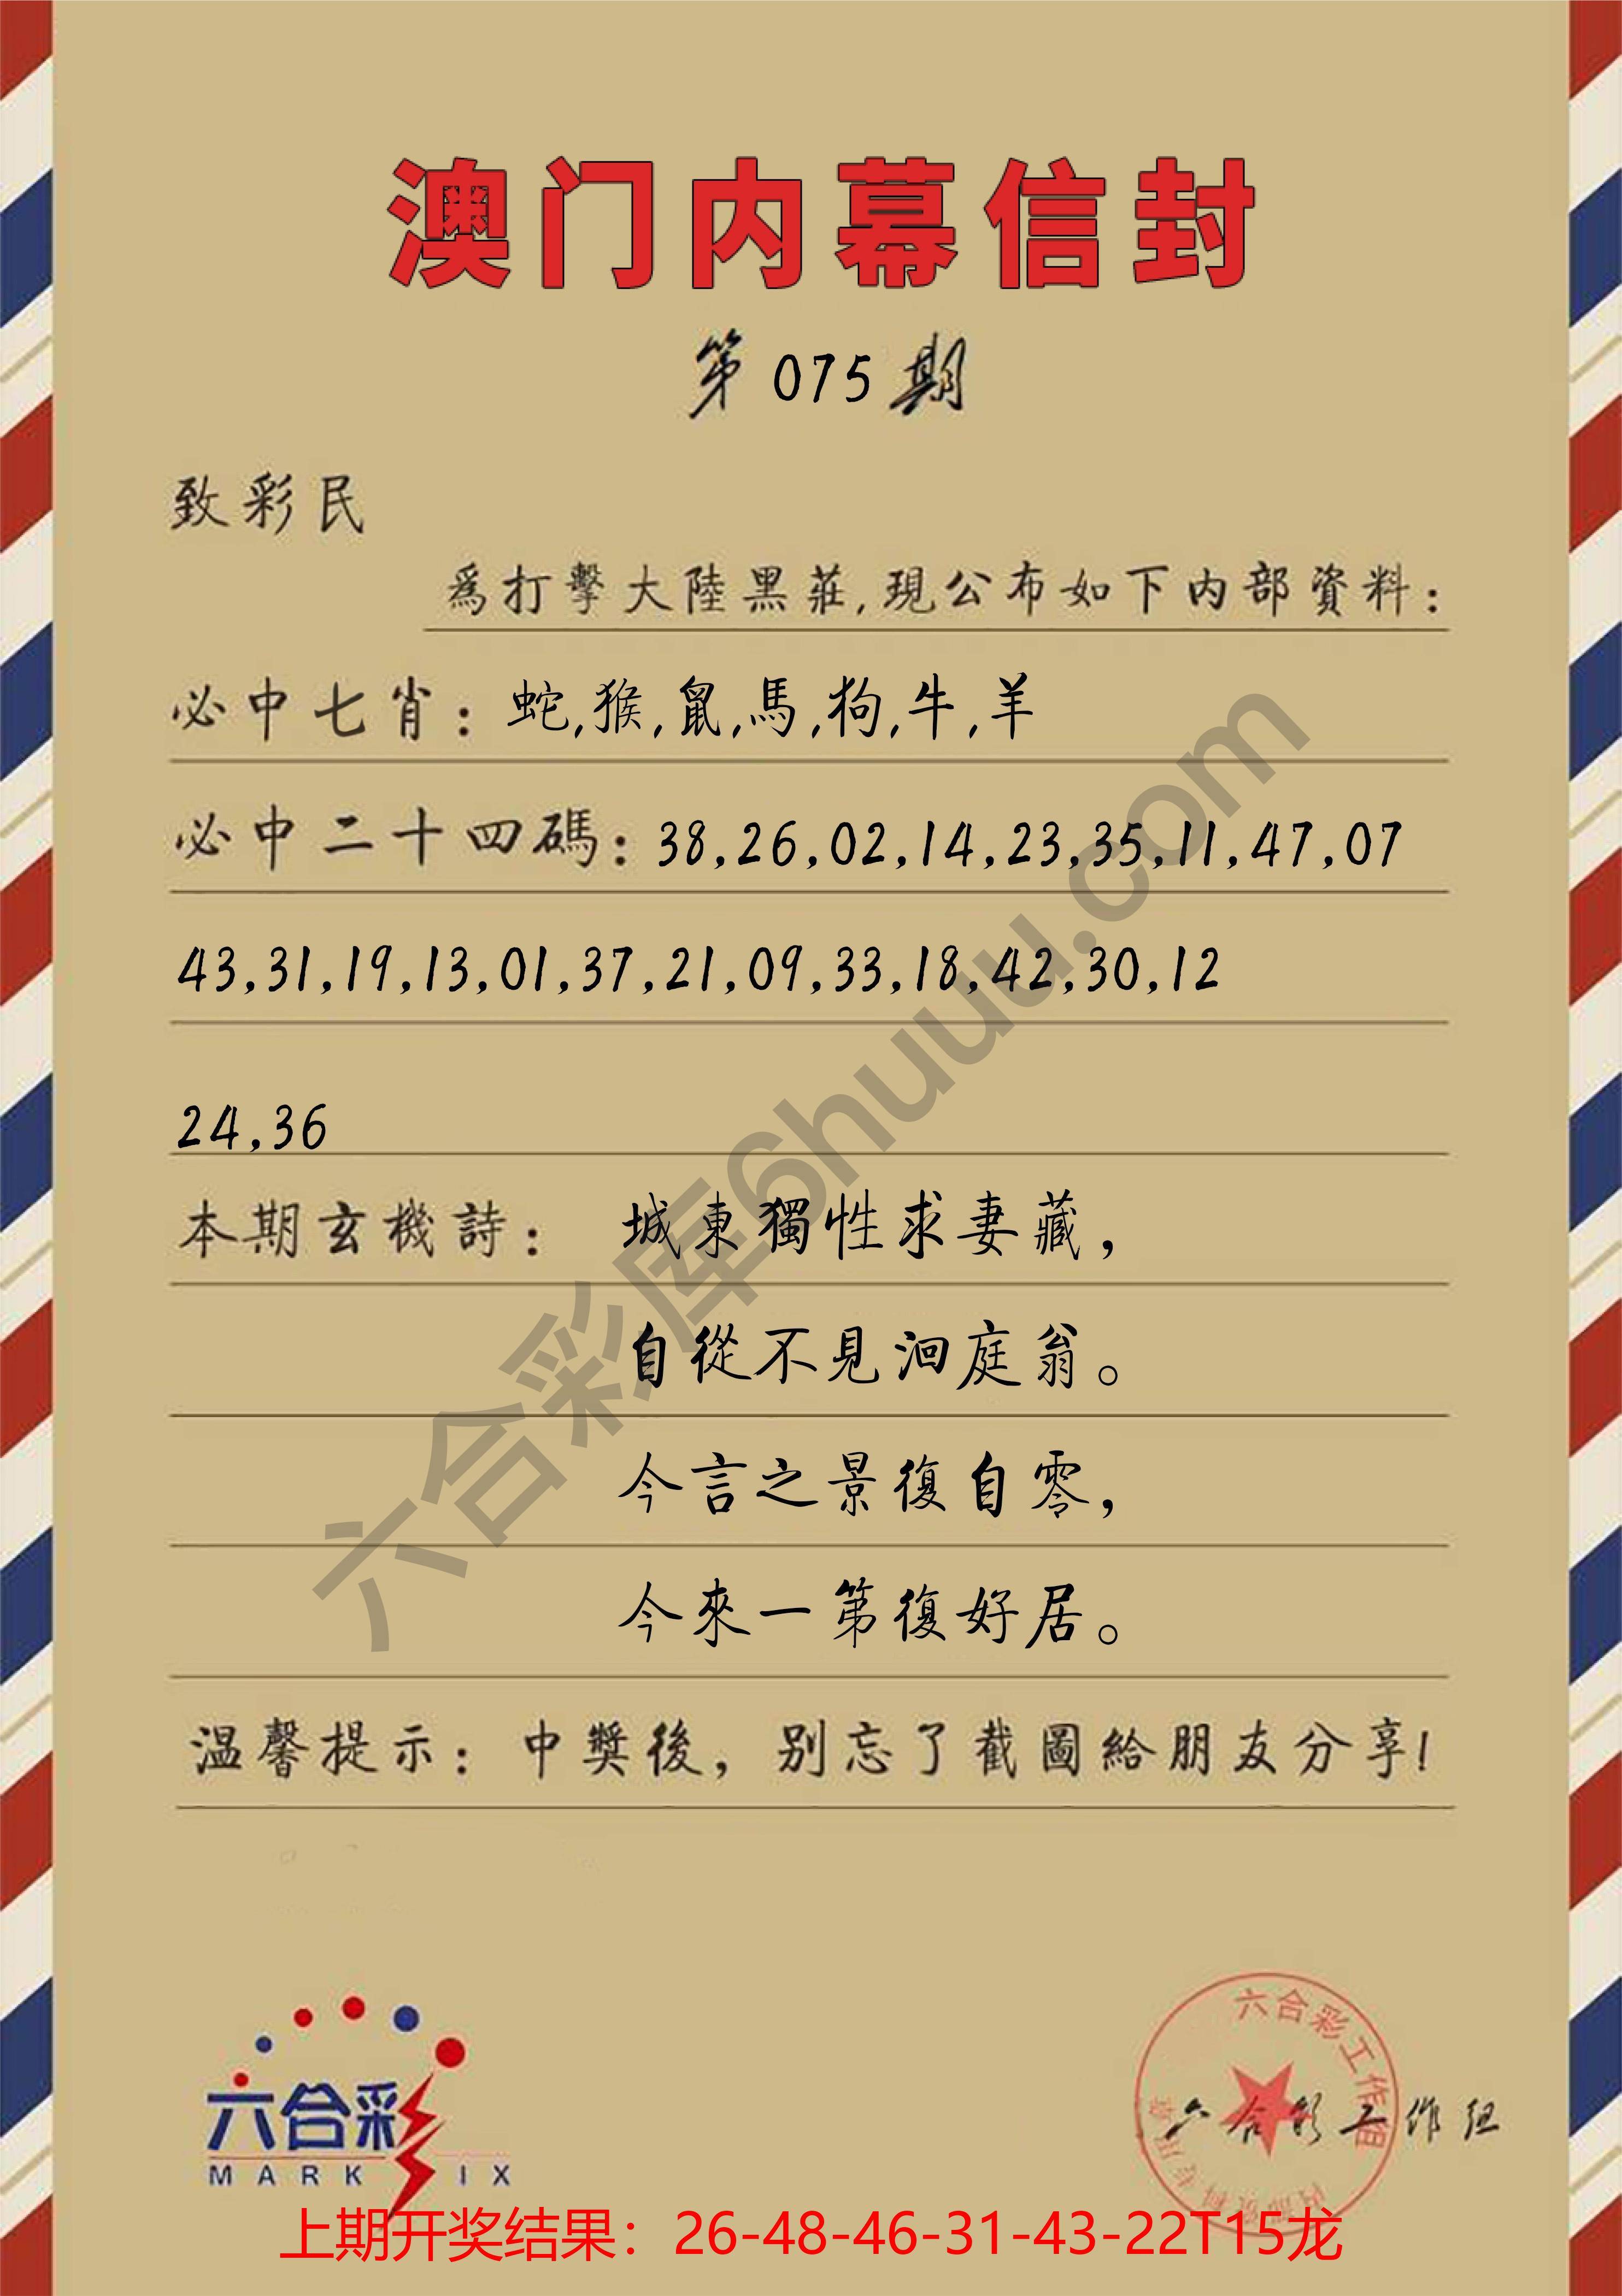 澳门内幕信封
第075期
致彩民
爲打擊大陸黑莊,現公布如下内部資料:
必中七肖: 蛇,猴,鼠,馬,狗,牛,羊
必中二十四碼: 38,26,02,14,23,35,11,47,07
43,31,19,13,01,37,21,09,33,18,42,30,12
24,36
本期玄機詩: 城東獨性求妻藏,
自從不見洄庭翁。
今言之景復自零,
今來一第復好居。
温馨提示: 中獎後, 别忘了截圖給朋友分享!
六合彩库6huuu.com
六合彩
MARK SIX
六合彩工作组
六合彩工作组
上期开奖结果: 26-48-46-31-43-22T15龙